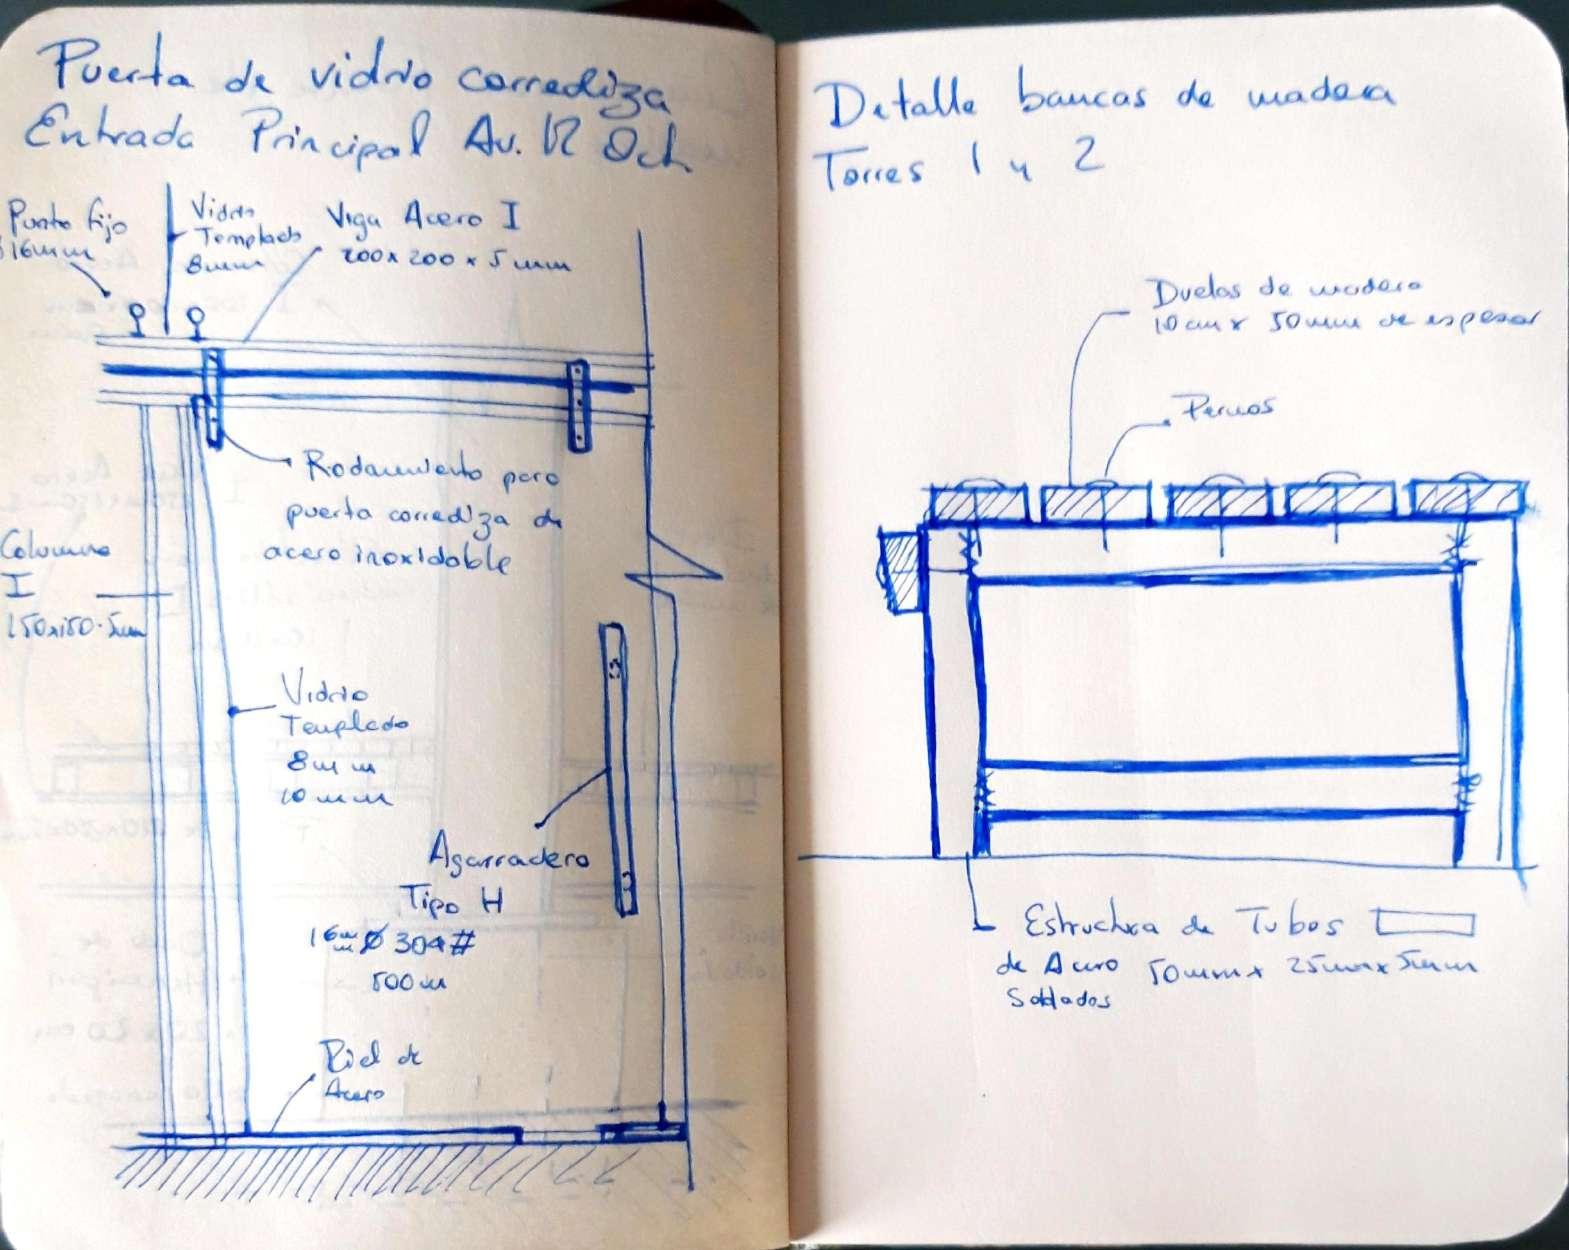 Puerta de vidrio corrediza
Entrada Principal Av. 12 Oct.
Punto fijo
16mm
Vidrio
Templado
8mm
Viga Acero I
200x200x5mm
Rodamiento para
puerta corrediza de
acero inoxidable
Columna
I
150x150.5mm
Vidrio
Templado
8mm
10mm
Agarradero
Tipo H
16mm Ø 304#
500m
Riel de
Acero
Detalle bancas de madera
Torres 1 y 2
Duelas de madera
10cm x 50mm de espesor
Pernos
Estructura de Tubos
de Acero 50mm x 25mm x 5mm
Soldados